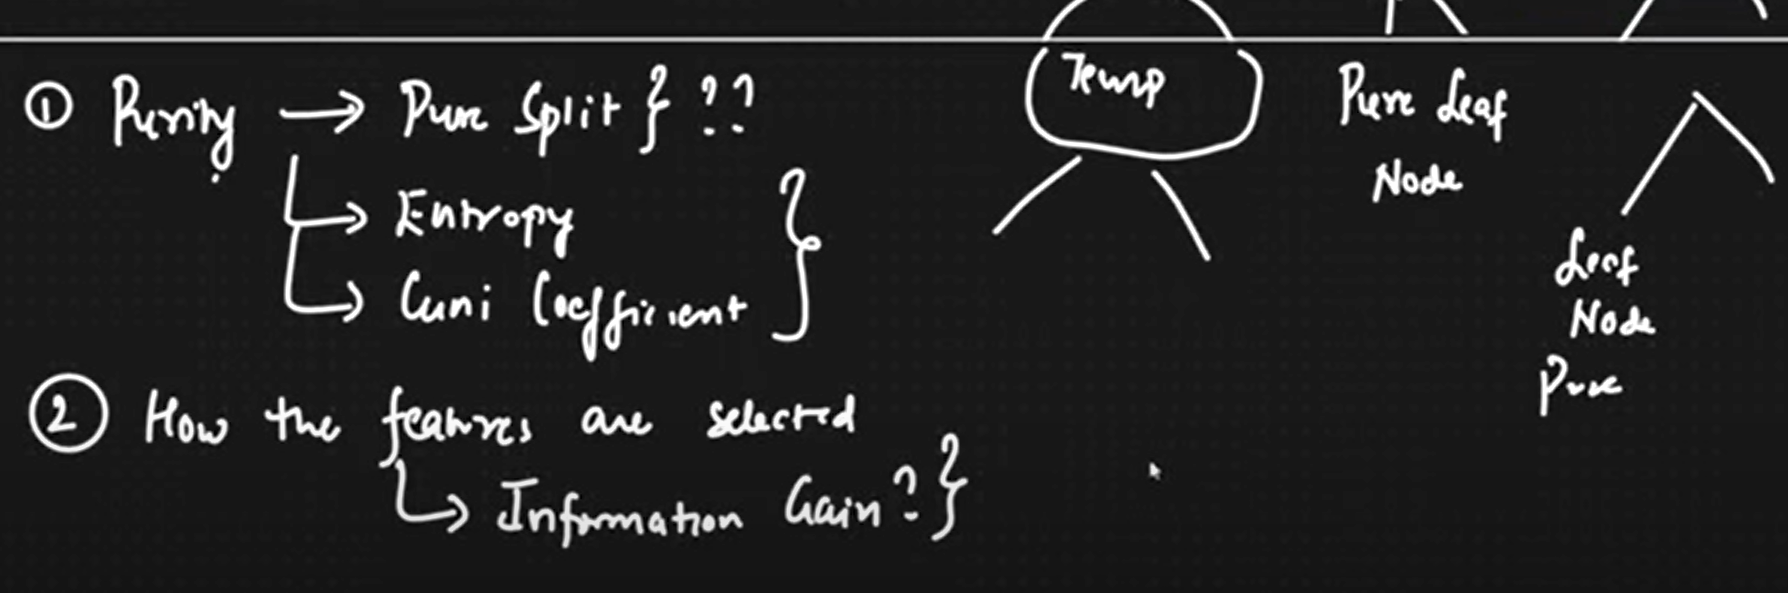 ① Purity → Pure Split } ??
→ Entropy
→ Gini Coefficient }
② How the features are selected
↳ Information Gain? }
Temp
Pure Leaf
Node
Leaf
Node
Pure